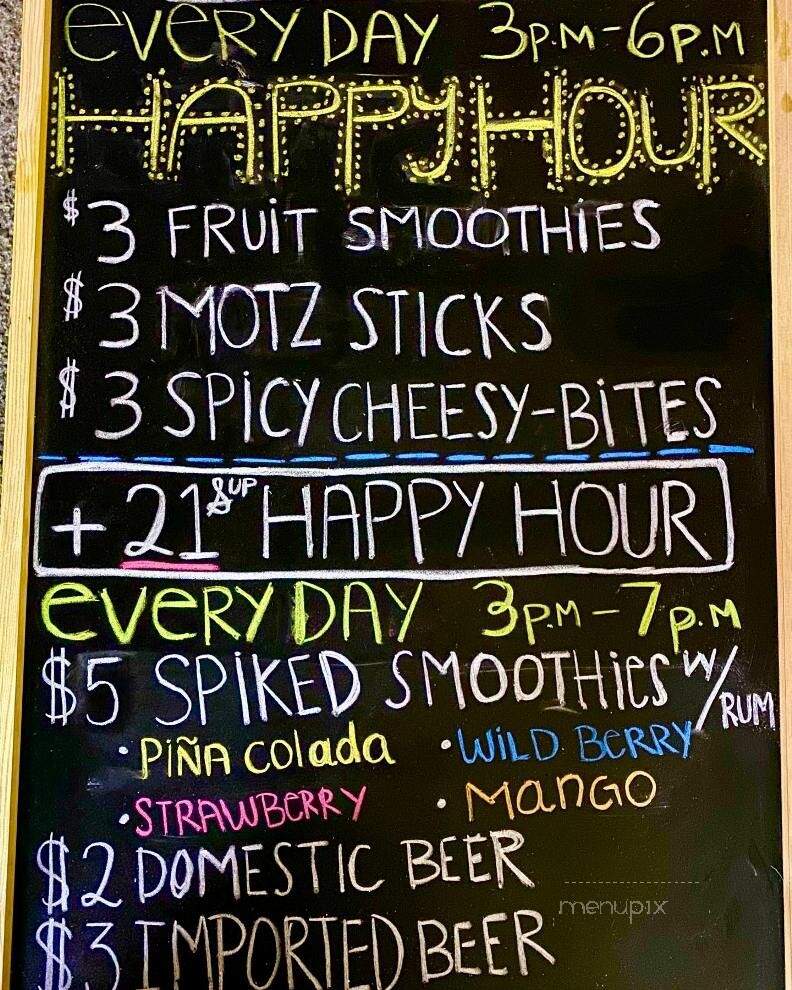 EVERY DAY 3P.M-6P.M
HAPPY HOUR
$3 FRUIT SMOOTHIES
$3 MOTZ STICKS
$3 SPICY CHEESY-BITES
+ 21 &UP HAPPY HOUR
EVERY DAY 3P.M-7P.M
$5 SPIKED SMOOTHIES W/RUM
• PIÑA Colada • WILD BERRY
• STRAWBERRY • MANGO
$2 DOMESTIC BEER
menupix
$3 IMPORTED BEER